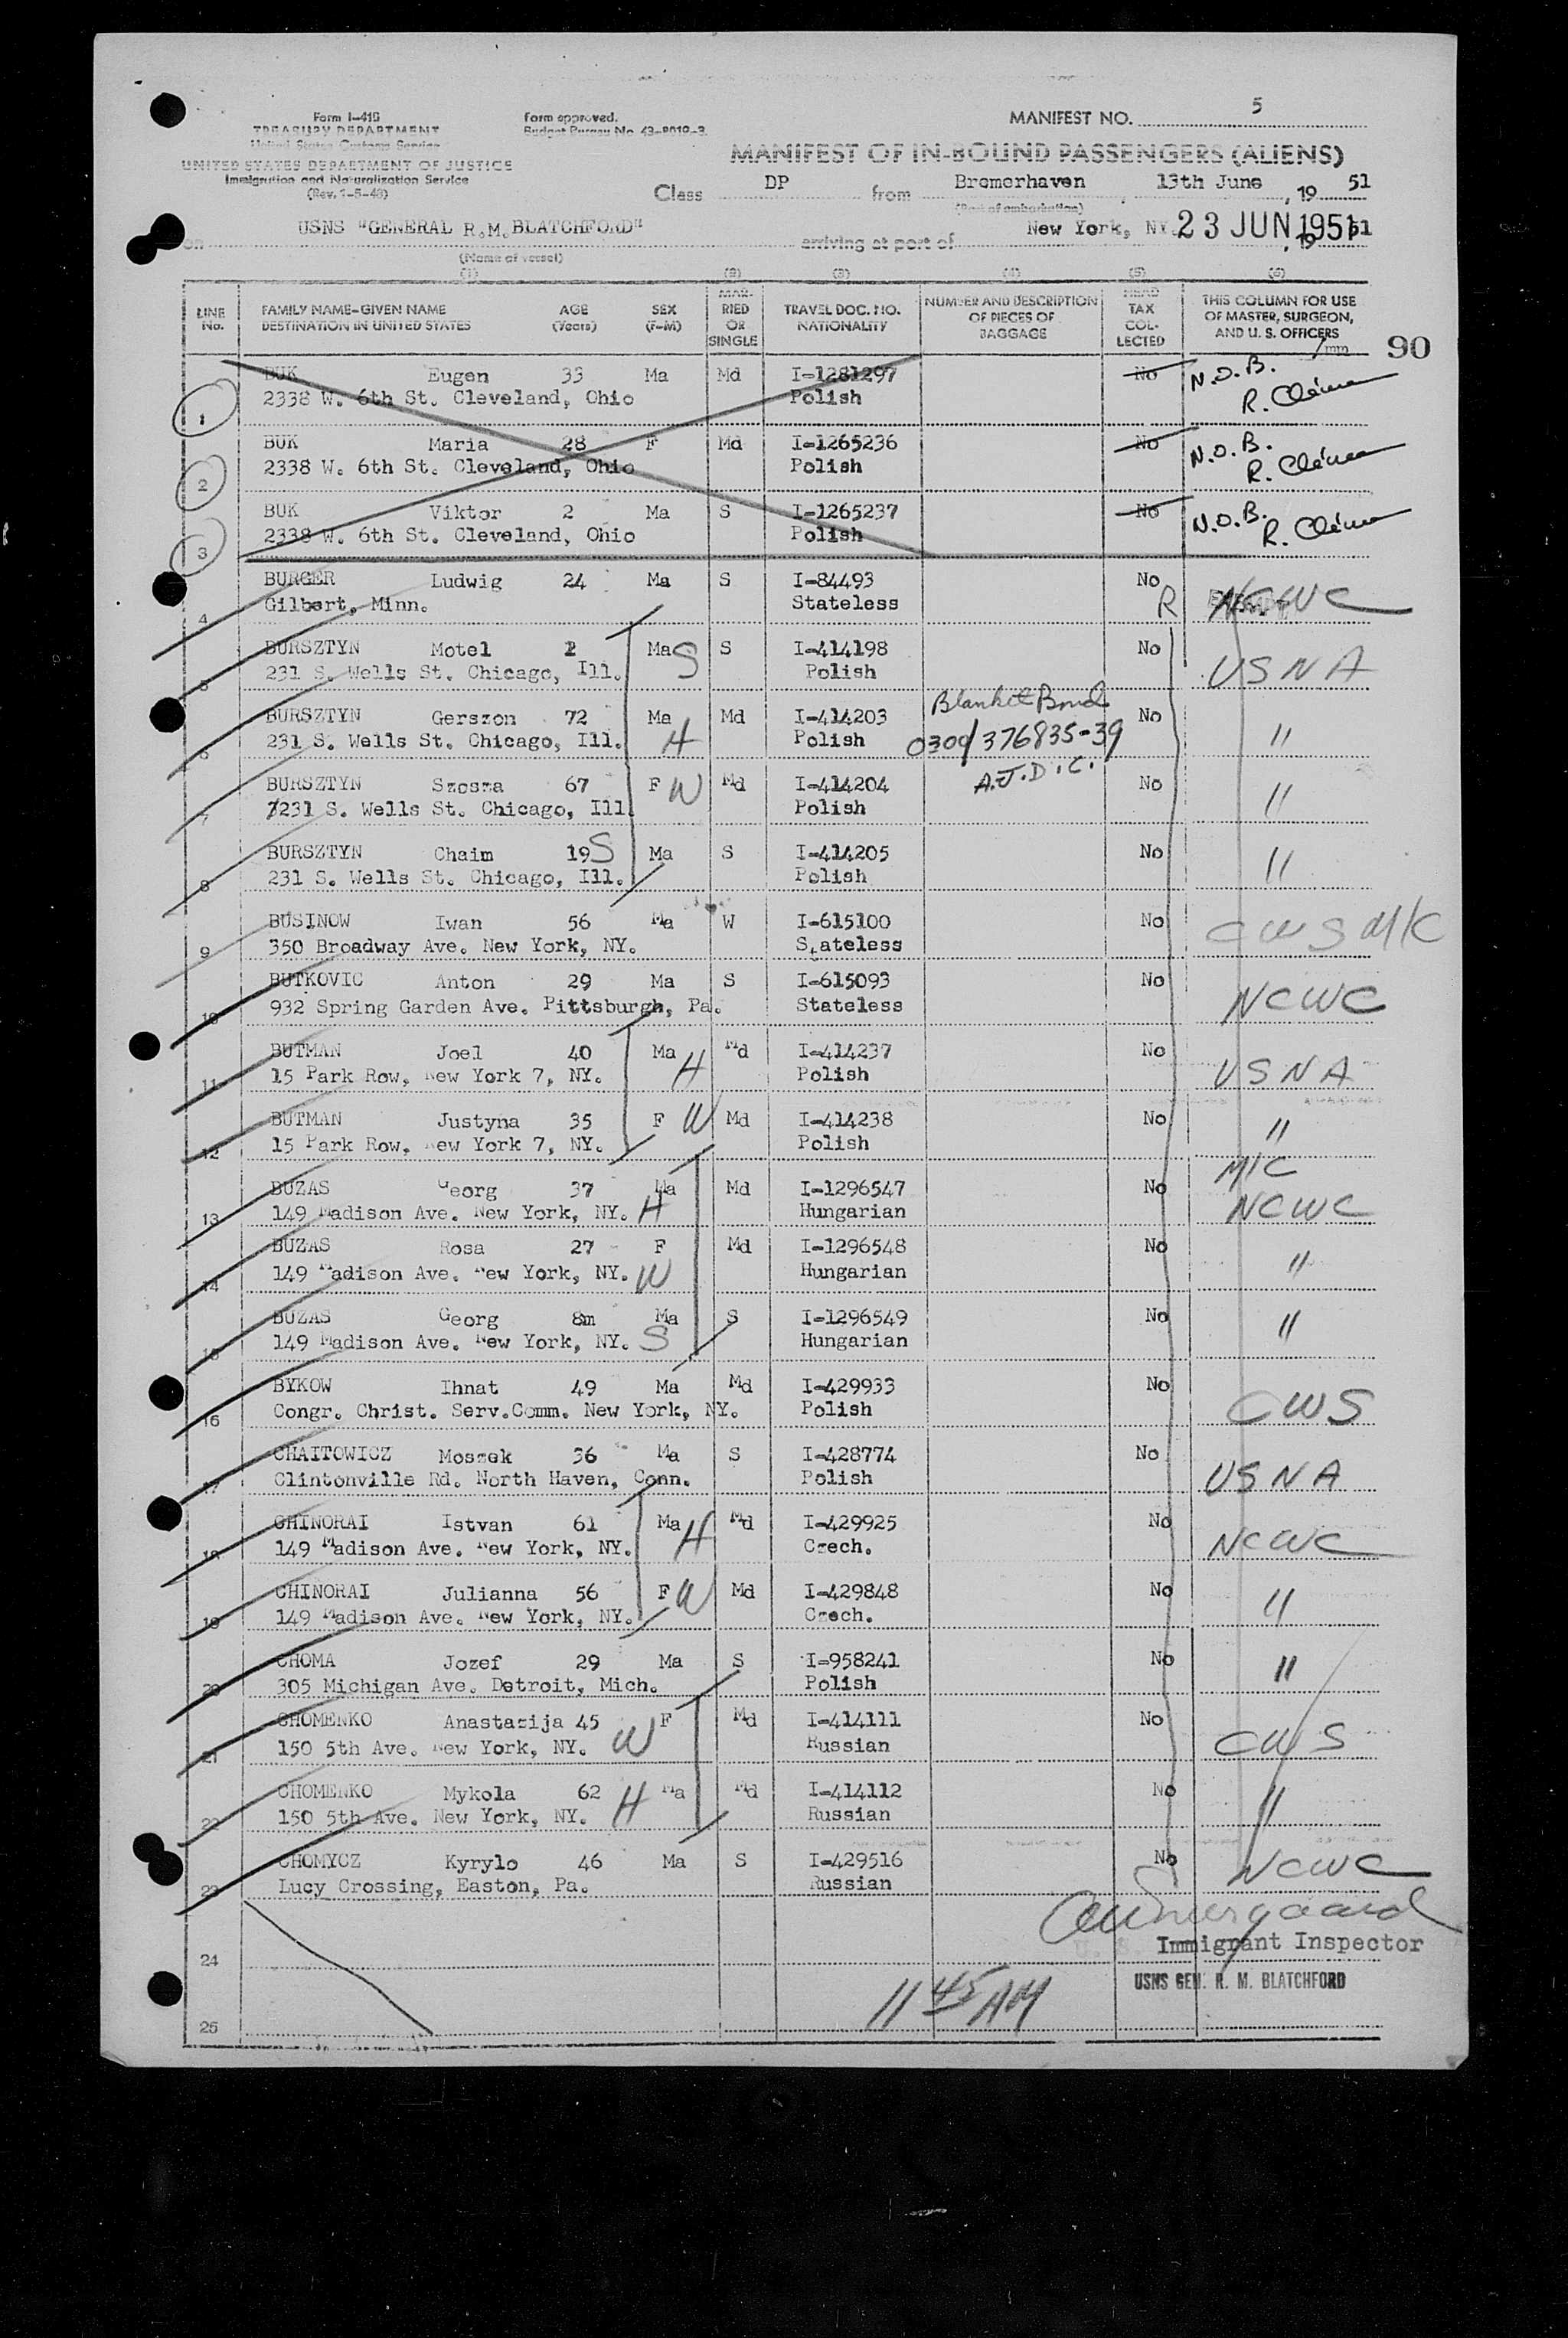 Form I-415
TREASURY DEPARTMENT
United States Customs Service
UNITED STATES DEPARTMENT OF JUSTICE
Immigration and Naturalization Service
Form approved.
Budget Bureau No. 43-R019-3.
MANIFEST NO. 5
MANIFEST OF IN-BOUND PASSENGERS (ALIENS)
Class DP from Bremerhaven, 13th June, 19 51
(Port of embarkation)
on USNS "GENERAL R.M. BLATCHFORD" arriving at port of New York, NY. 23 JUN 1951, 19 51
(Name of vessel)
(1) (2) (3) (4) (5) (6)
LINE No. FAMILY NAME-GIVEN NAME DESTINATION IN UNITED STATES AGE (Years) SEX (F-M) MAR-RIED OR SINGLE TRAVEL DOC. NO. NATIONALITY NUMBER AND DESCRIPTION OF PIECES OF BAGGAGE HEAD TAX COL-LECTED THIS COLUMN FOR USE OF MASTER, SURGEON, AND U. S. OFFICERS
90
1 BUK Eugen 33 Ma Md I-1281297 No N.O.B.
2338 W. 6th St. Cleveland, Ohio Polish
2 BUK Maria 28 F Md I-1265236 No N.O.B.
2338 W. 6th St. Cleveland, Ohio Polish
3 BUK Viktor 2 Ma S I-1265237 No N.O.B.
2338 W. 6th St. Cleveland, Ohio Polish
4 BURGER Ludwig 24 Ma S I-84493 No
Gilbert, Minn. Stateless R NCWC
5 BURSZTYN Motel 2 Ma S S I-414198 No
231 S. Wells St. Chicago, Ill. Polish USNA
6 BURSZTYN Gerszon 72 Ma Md I-414203 Blanket Bond No
231 S. Wells St. Chicago, Ill. H Polish 0300/376835-39 "
A.J.D.C.
7 BURSZTYN Szosza 67 F W Md I-414204 No
231 S. Wells St. Chicago, Ill Polish "
8 BURSZTYN Chaim 19 S Ma S I-414205 No
231 S. Wells St. Chicago, Ill. Polish "
9 BUSINOW Iwan 56 Ma W I-615100 No
350 Broadway Ave. New York, NY. Stateless CWS M/C
10 BUTKOVIC Anton 29 Ma S I-615093 No
932 Spring Garden Ave. Pittsburgh, Pa. Stateless NCWC
11 BUTMAN Joel 40 Ma H Md I-414237 No
15 Park Row, New York 7, NY. Polish USNA
12 BUTMAN Justyna 35 F W Md I-414238 No
15 Park Row, New York 7, NY. Polish "
13 BUZAS Georg 37 Ma Md I-1296547 No M/C
149 Madison Ave. New York, NY. H Hungarian NCWC
14 BUZAS Rosa 27 F Md I-1296548 No
149 Madison Ave. New York, NY. W Hungarian "
15 BUZAS Georg 8m Ma S I-1296549 No
149 Madison Ave. New York, NY. S Hungarian "
16 BYKOW Ihnat 49 Ma Md I-429933 No
Congr. Christ. Serv.Comm. New York, NY. Polish CWS
17 CHAITOWICZ Moszek 36 Ma S I-428774 No
Clintonville Rd. North Haven, Conn. Polish USNA
18 CHINORAI Istvan 61 Ma H Md I-429925 No
149 Madison Ave. New York, NY. Czech. NCWC
19 CHINORAI Julianna 56 F W Md I-429848 No
149 Madison Ave. New York, NY. Czech. "
20 CHOMA Jozef 29 Ma S I-958241 No
305 Michigan Ave. Detroit, Mich. Polish "
21 CHOMENKO Anastazija 45 F Md I-414111 No
150 5th Ave. New York, NY. W Russian CWS
22 CHOMENKO Mykola 62 Ma Md I-414112 No
150 5th Ave. New York, NY. H Russian "
23 CHOMYCZ Kyrylo 46 Ma S I-429516 No
Lucy Crossing, Easton, Pa. Russian NCWC
24 Immigrant Inspector
USNS GEN. R. M. BLATCHFORD
11 45 AM
25